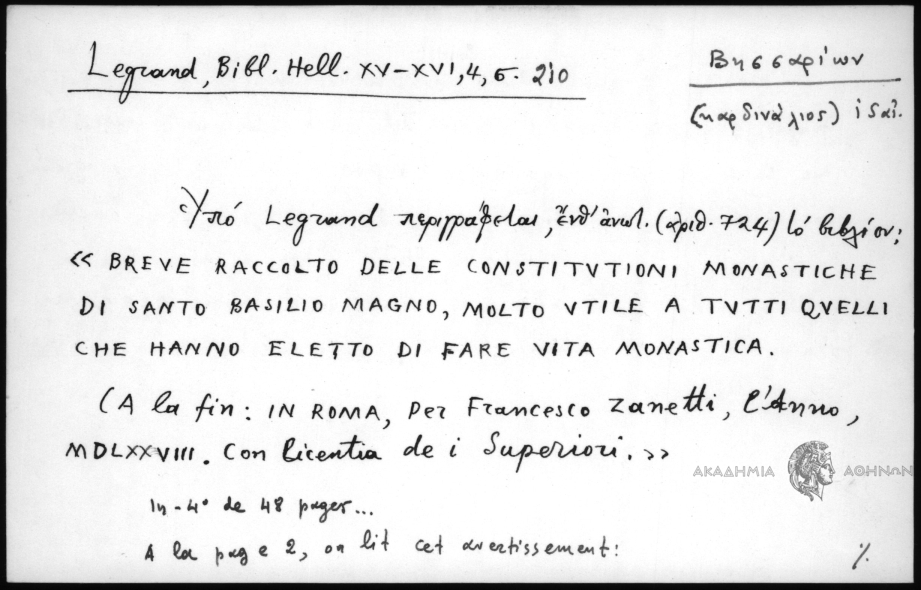 Legrand, Bibl. Hell. XV-XVI, 4, σ. 210
Βησσαρίων
(καρδινάλιος) ἰδαἰ.
Ὑπό Legrand περιγράφεται, ἔνθ' ἀνωτ. (ἀριθ. 724) τό βιβλίον;
« BREVE RACCOLTO DELLE CONSTITVTIONI MONASTICHE
DI SANTO BASILIO MAGNO, MOLTO VTILE A TVTTI QVELLI
CHE HANNO ELETTO DI FARE VITA MONASTICA.
(A la fin: IN ROMA, Per Francesco Zanetti, l'Anno,
MDLXXVIII. Con licentia de i Superiori.»
ΑΚΑΔΗΜΙΑ ΑΘΗΝΩΝ
In-4° de 48 pages...
A la page 2, on lit cet avertissement:
·/.